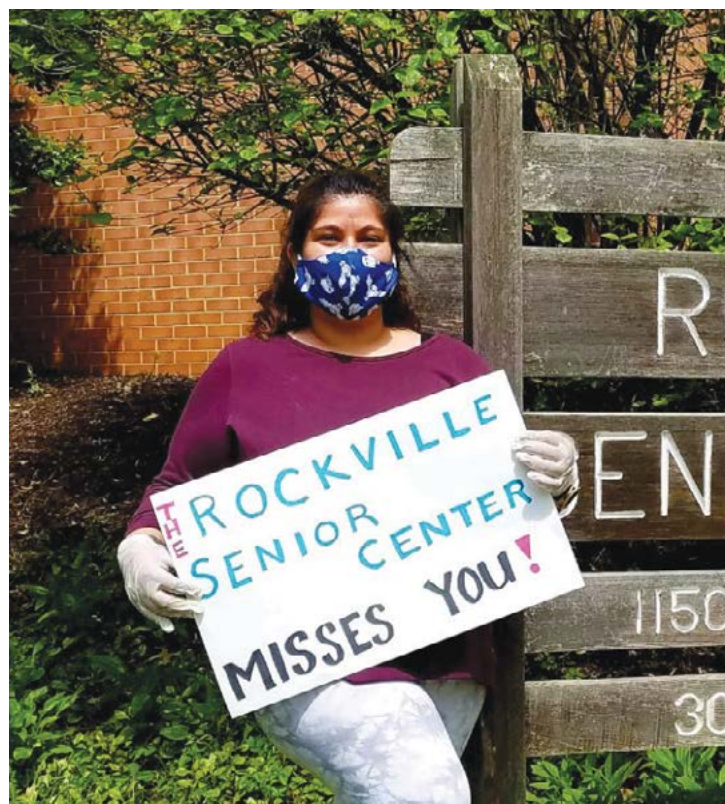 THE ROCKVILLE
SENIOR
CENTER
MISSES YOU!
R
SEN
1150
30